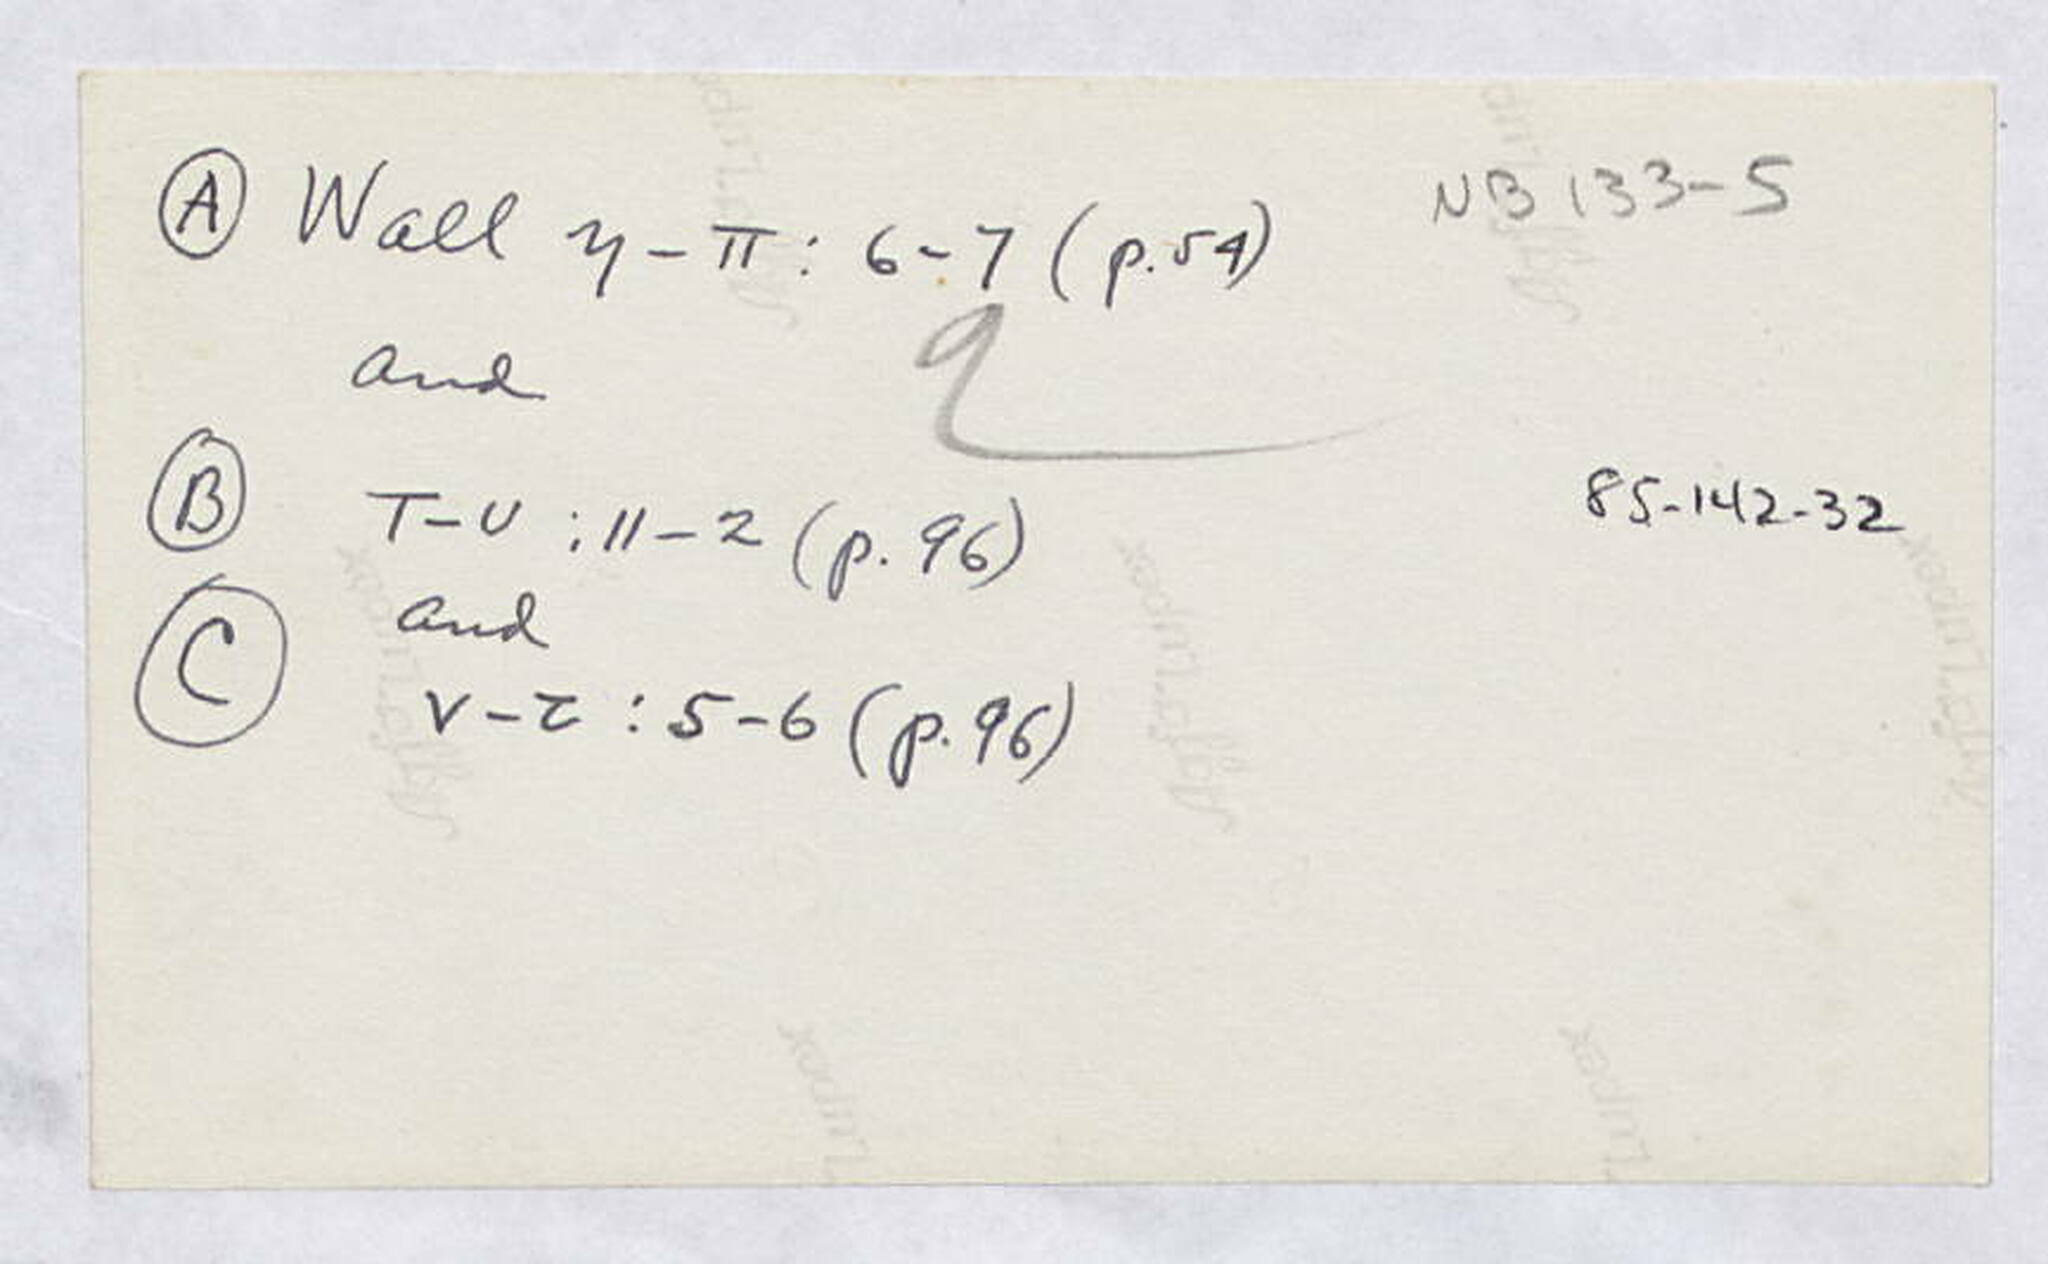 Ⓐ Wall η-π: 6-7 (p.54)
NB 133-5
and
Ⓑ T-U : 11-2 (p. 96)
85-142-32
and
Ⓒ ν-τ : 5-6 (p. 96)